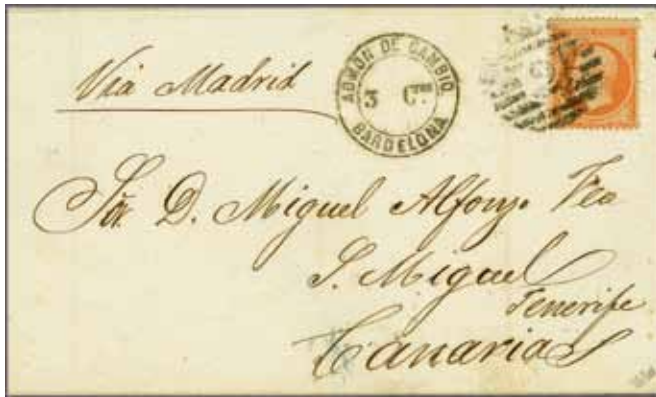 Via Madrid
ADMON DE CAMBIO
3 Cs
BARCELONA
Sor. D. Miguel Alfonzo Feo
S. Miguel
Tenerife
Canarias